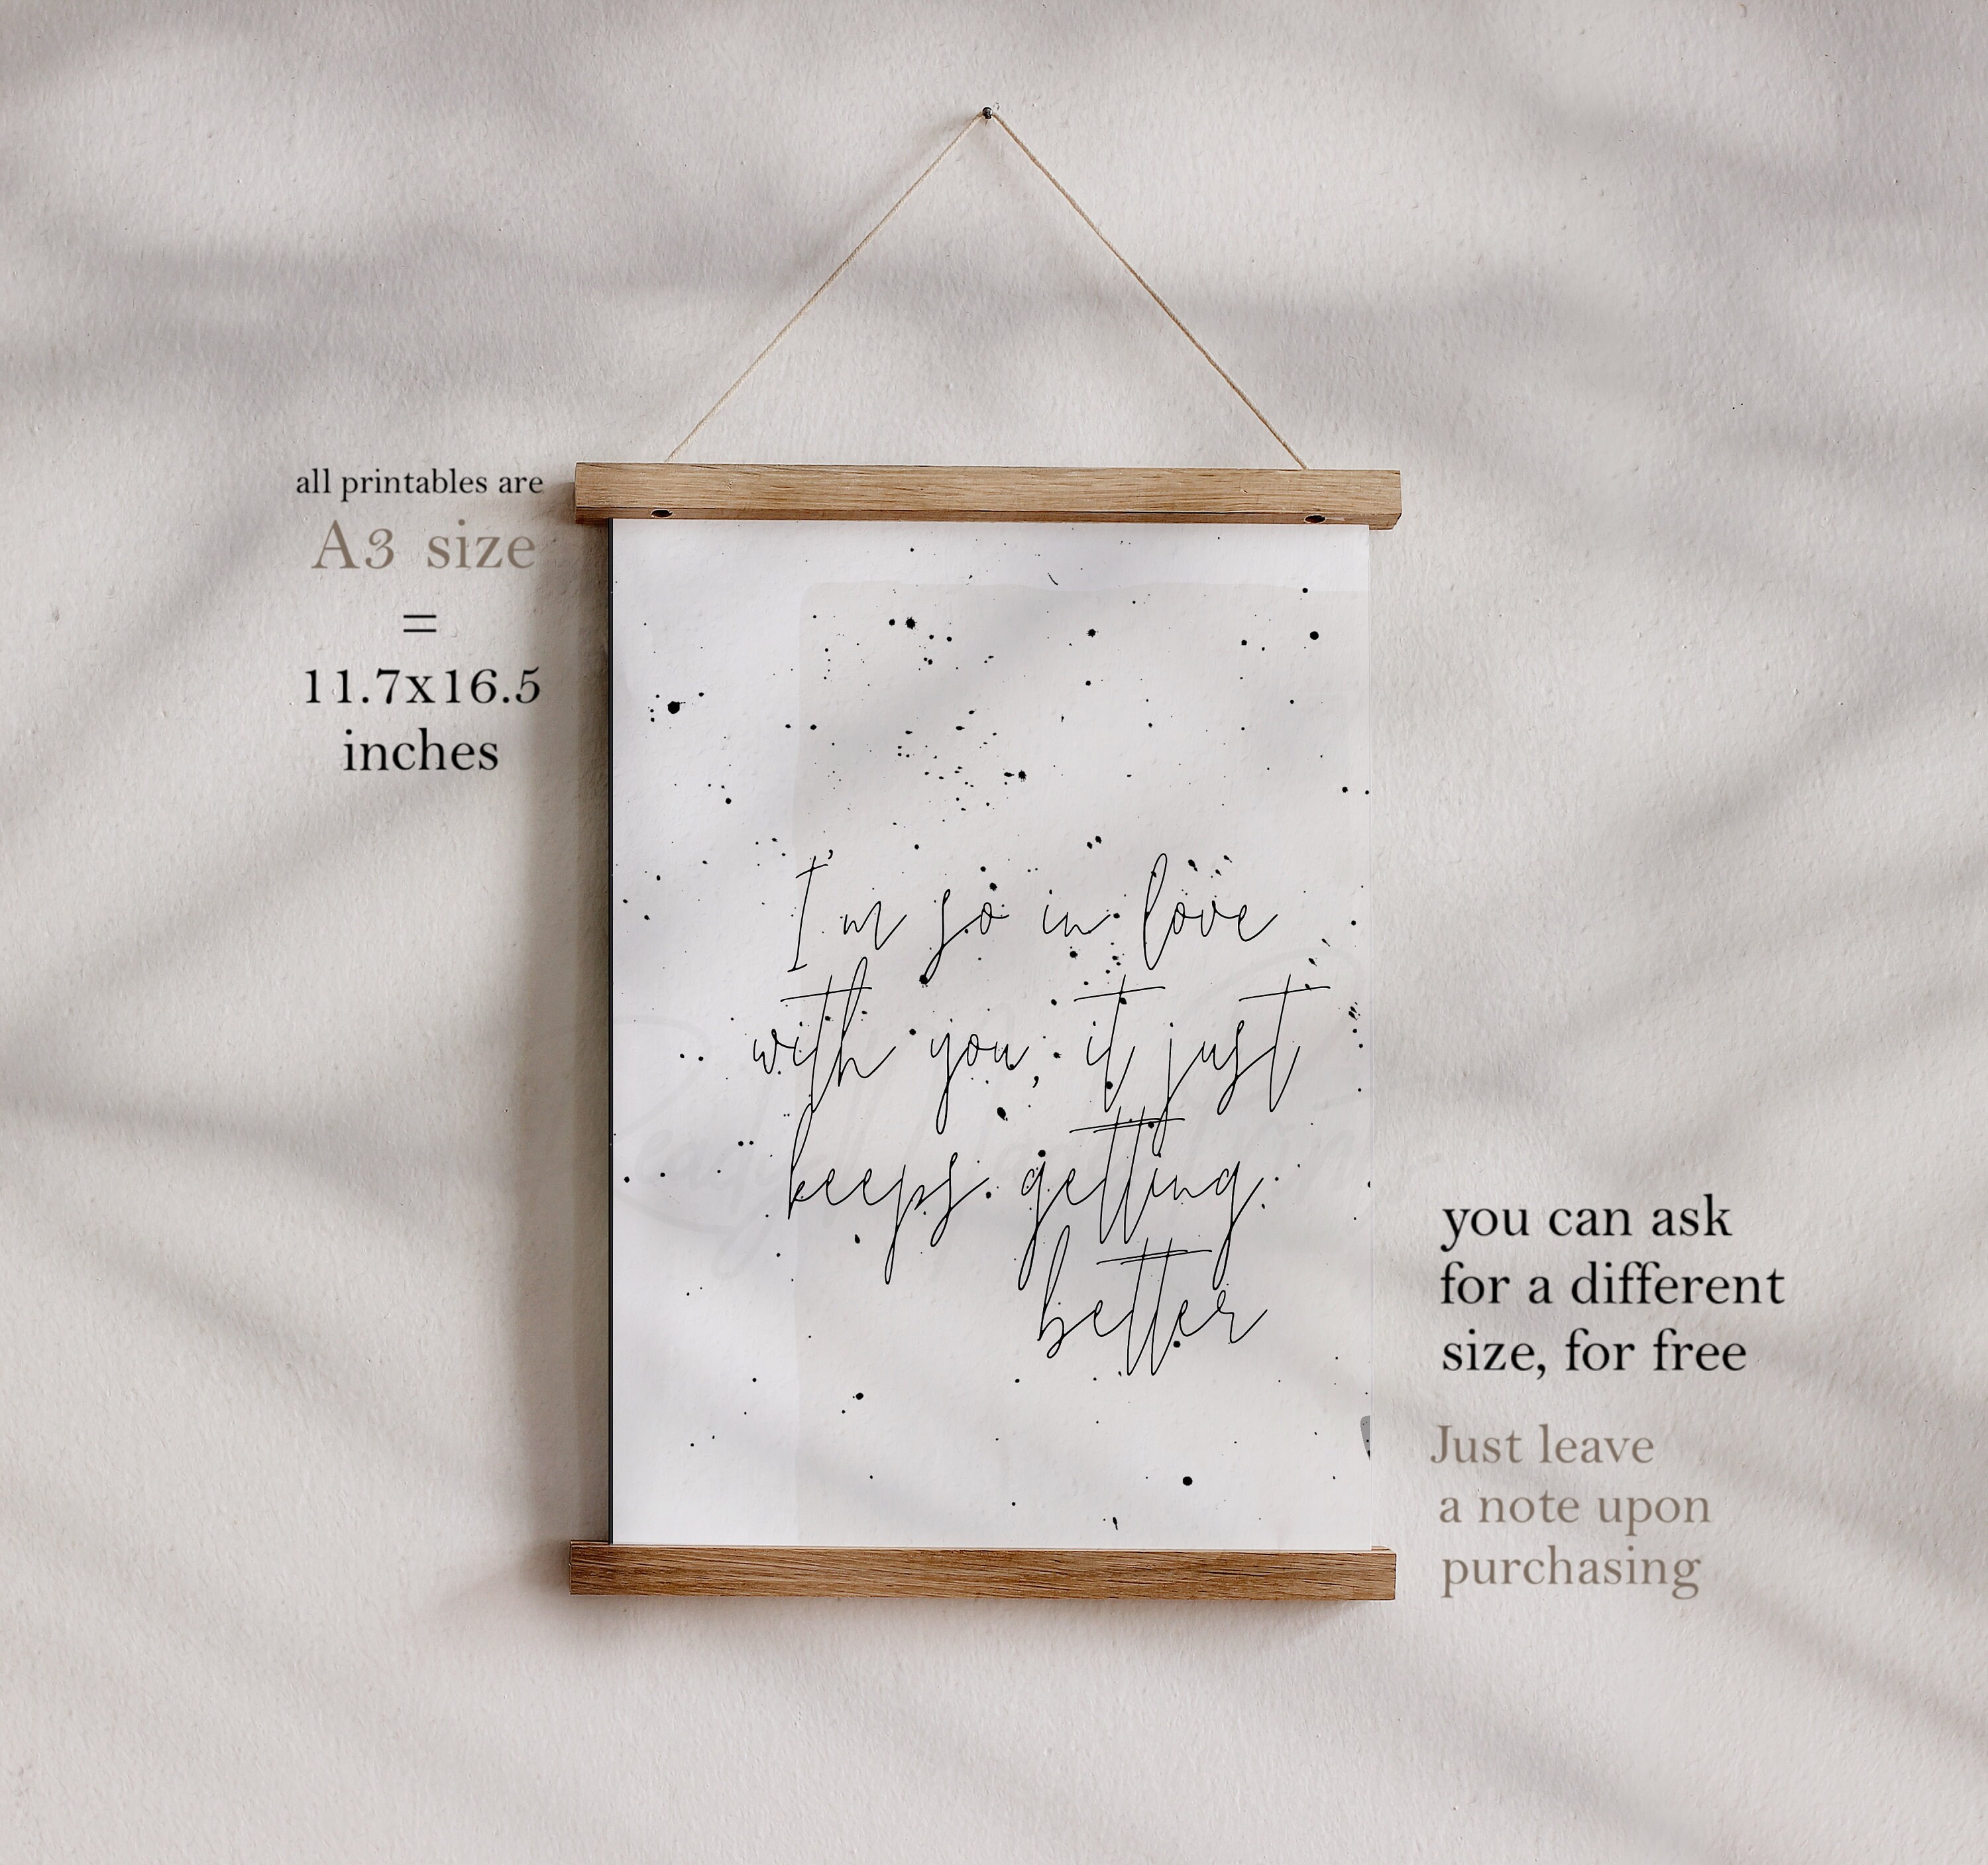 all printables are
A3 size
=
11.7x16.5
inches
I'm so in love
with you, it just
keeps getting
better
you can ask
for a different
size, for free
Just leave
a note upon
purchasing